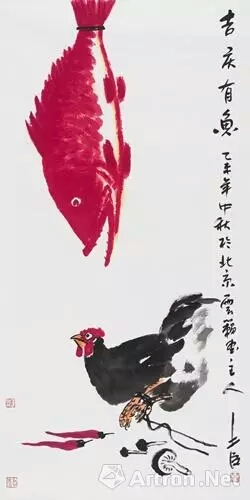 吉庆有魚
乙未年中秋於北京雲
主人
Artron.Net